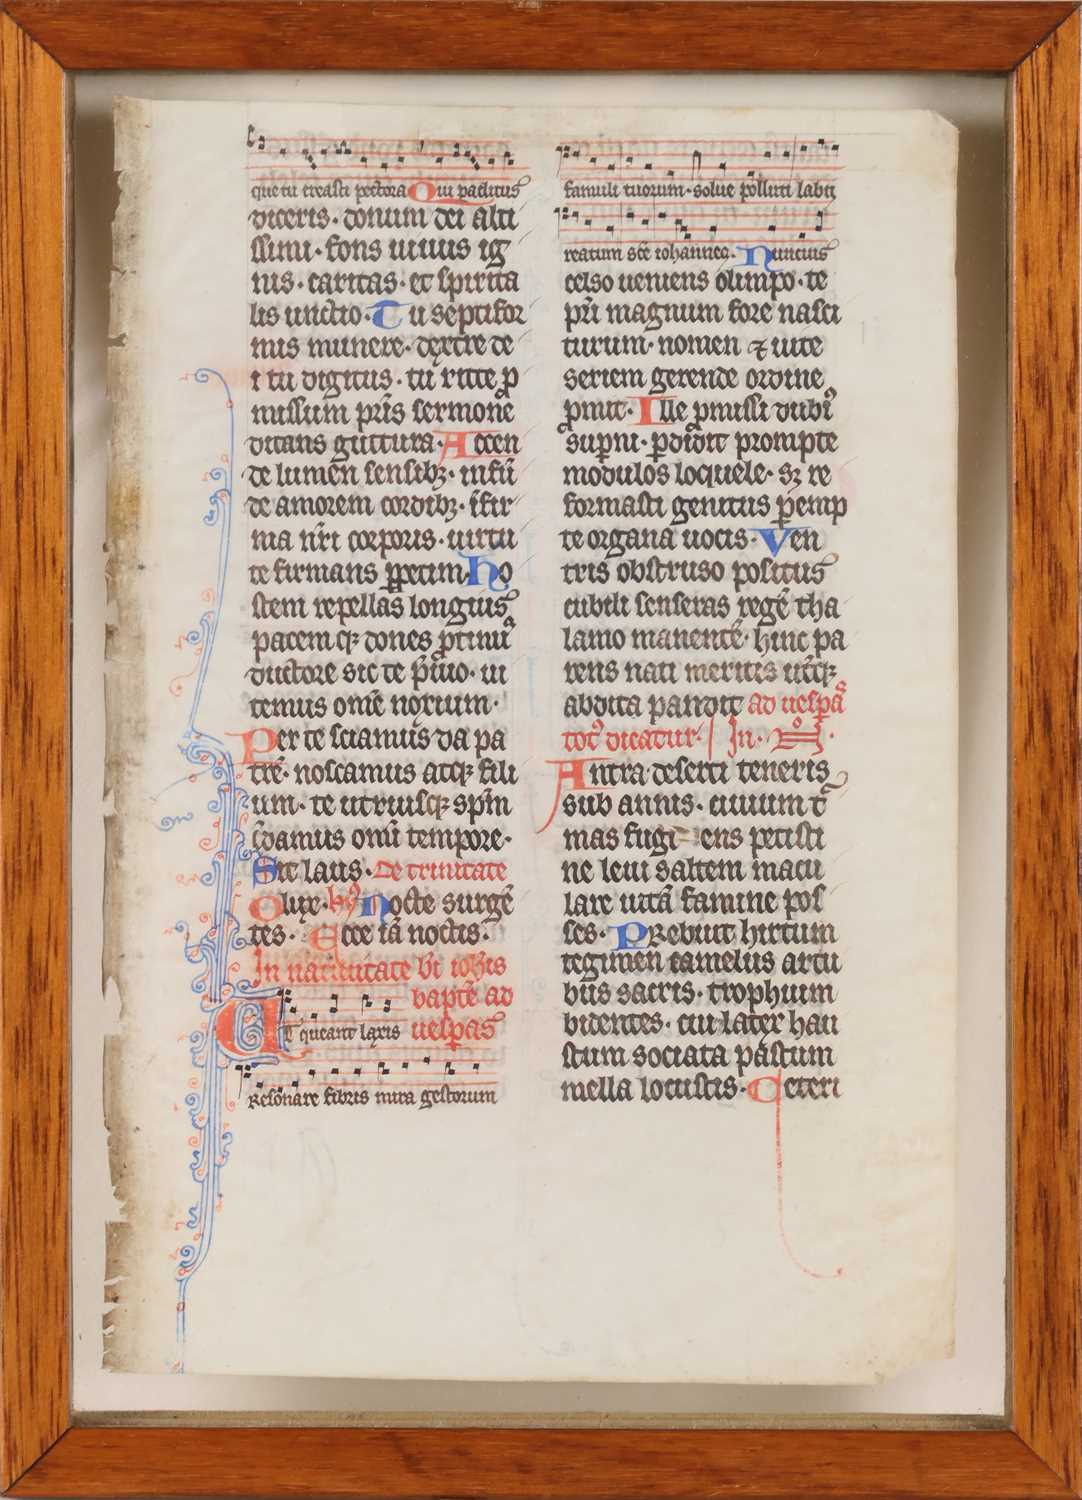 que tu creasti pectora Qui paclitus
diceris. donum dei alti
ssimi. fons uiuus ig
nis. caritas. et spirita
lis unctio. Tu septifor
mis munere. dextre de
i tu digitus. tu rite p̱
missum pr̄is sermone
ditans guttura. Accen
de lumen sensibꝫ. infū
de amorem cordibꝫ. īfir
ma nr̄i corporis. uirtu
te firmans ꝑpetim. Ho
stem repellas longius
pacemqꝫ dones ꝓtinus
ductore sic te p̄uio. ui
temus omē noxium.
Per te sciamus da pa
trē. noscamus atqꝫ fili
um. te utriusqꝫ spm̄
c̄damus omī tempore.
Sit laus. De trinitate
O lux. hꝰ Nocte surgē
tes. Ecce iā noctis.
In natiuitate bī ioh̄is
bapte ad
UT queant laxis uesꝑas
Resonare fibris mira gestorum
famuli tuorum. solue polluti labii
reatum sc̄e iohannes. Nuncius
celso ueniens olimpo. te
pr̄i magnum fore nasci
turum. nomen ⁊ uite
seriem gerende ordine
ꝓmit. Ille ꝓmissi dubiꝰ
suꝑni. ꝑdidit prompte
modulos loquele. sꝫ re
formasti genitus ꝑemp
te organa uocis. Ven
tris obstruso positus
cubili senseras regē tha
lamo manentē. hinc pa
rens nati meritis ut̄qꝫ
abdita pandit ad uesꝑas
totꝰ dicatur. In.
Antra deserti teneris
sub annis. ciuium t̄
mas fugiens petisti
ne leui saltem macu
lare uitā famine pos
ses. Prebuit hirtum
tegimen camelus artu
bus sacris. trophium
bidentes. cui latex hau
stum sociata pastum
mella locustis. Ceteri